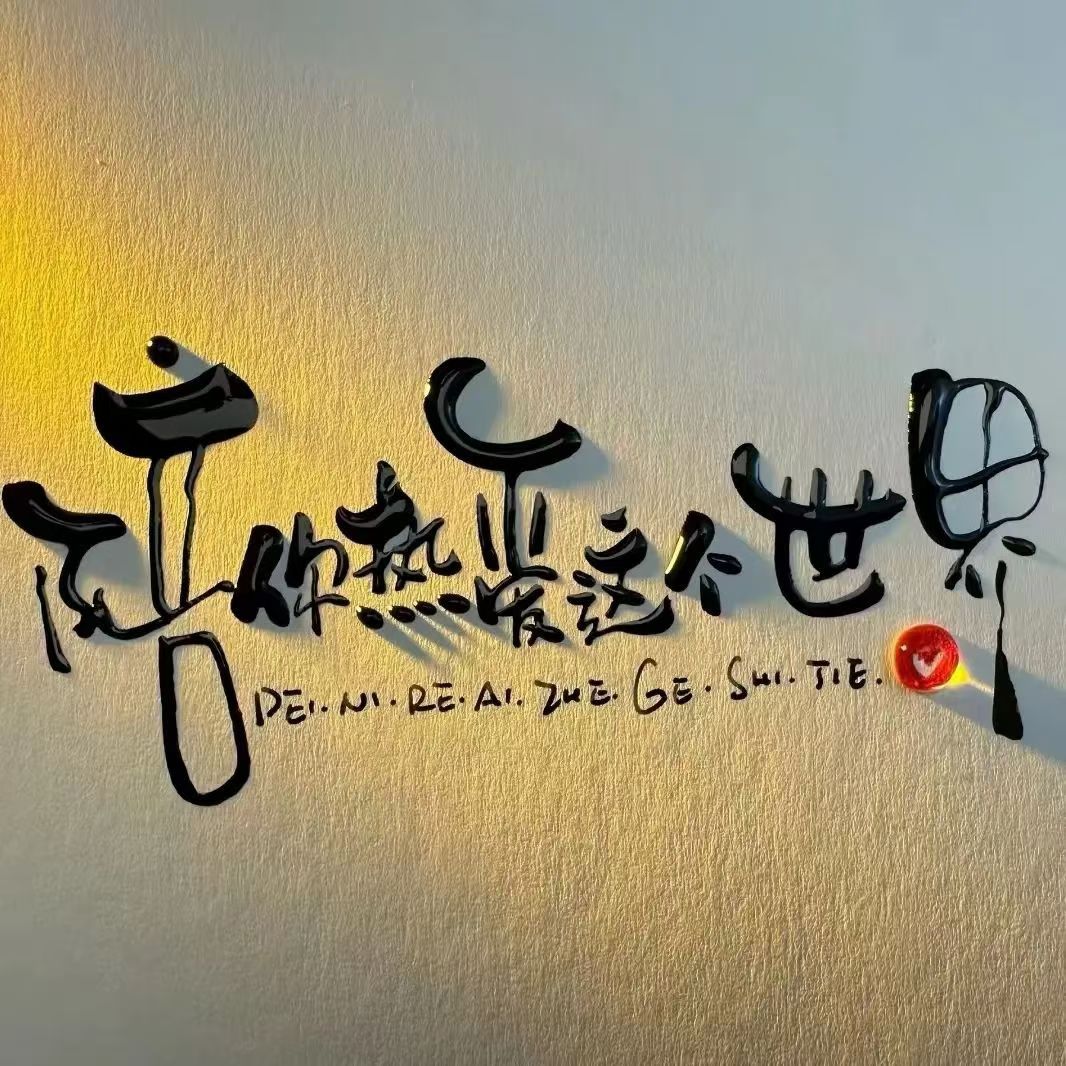 陪你热爱这个世界
PEI.NI.RE.AI.ZHE.GE.SHI.JIE.